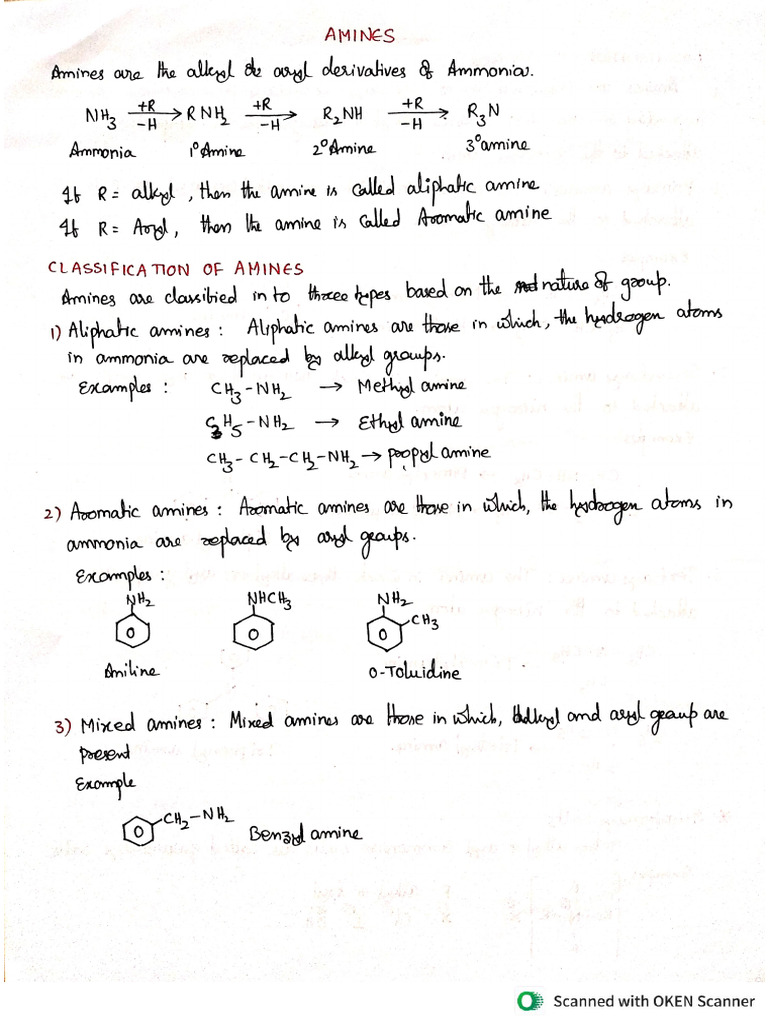 AMINES
Amines are the alkyl or aryl derivatives of Ammonia.
NH3 +R/-H → RNH2 +R/-H → R2NH +R/-H → R3N
Ammonia 1° Amine 2° Amine 3° amine
If R = alkyl, then the amine is called aliphatic amine
If R = Aryl, then the amine is called Aromatic amine
CLASSIFICATION OF AMINES
Amines are classified in to three types based on the nature of group.
1) Aliphatic amines : Aliphatic amines are those in which, the hydrogen atoms
in ammonia are replaced by alkyl groups.
Examples : CH3-NH2 → Methyl amine
C2H5-NH2 → Ethyl amine
CH3-CH2-CH2-NH2 → propyl amine
2) Aromatic amines : Aromatic amines are those in which, the hydrogen atoms in
ammonia are replaced by aryl groups.
Examples :
NH2 NHCH3 NH2
CH3
Aniline O-Toluidine
3) Mixed amines : Mixed amines are those in which, alkyl and aryl group are
present
Example
CH2-NH2
Benzyl amine
Scanned with OKEN Scanner